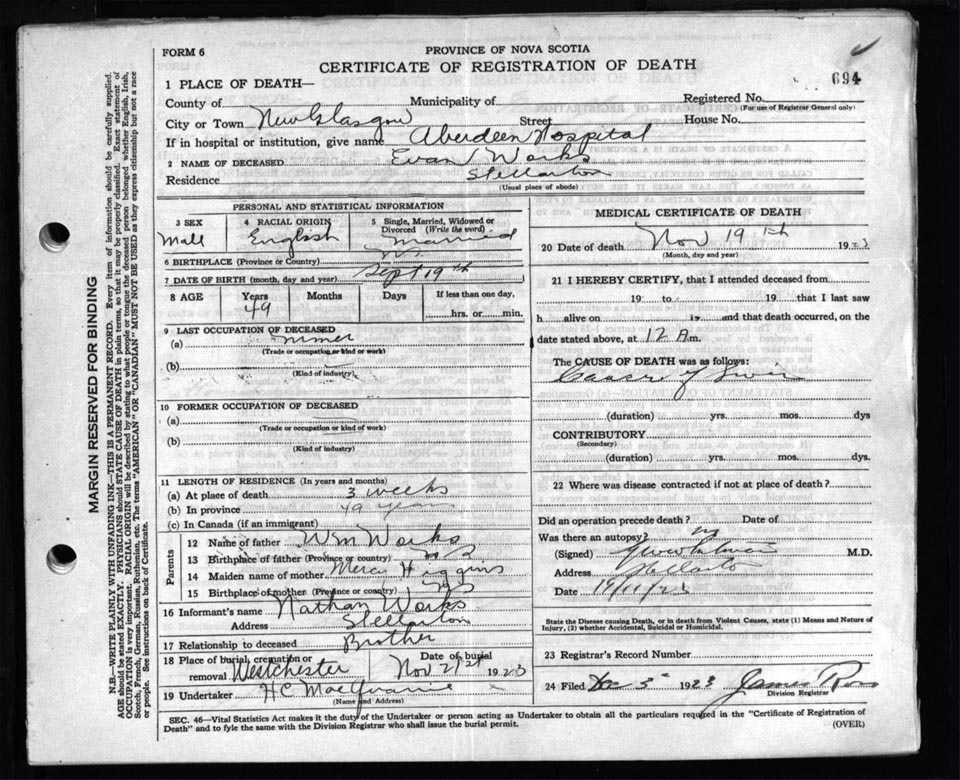 FORM 6
PROVINCE OF NOVA SCOTIA
CERTIFICATE OF REGISTRATION OF DEATH
694
1 PLACE OF DEATH—
County of
Municipality of
Registered No.
(For use of Registrar General only)
City or Town New Glasgow Street House No.
If in hospital or institution, give name Aberdeen Hospital
2 NAME OF DECEASED Evan Works
Residence Stellarton
(Usual place of abode)
PERSONAL AND STATISTICAL INFORMATION
3 SEX Male
4 RACIAL ORIGIN English
5 Single, Married, Widowed or Divorced (Write the word) Married
6 BIRTHPLACE (Province or Country)
7 DATE OF BIRTH (month, day and year) Sept 19th
8 AGE Years 49 Months Days If less than one day, hrs. or min.
9 LAST OCCUPATION OF DECEASED
(a)
(Trade or occupation or kind of work)
(b)
(Kind of industry)
10 FORMER OCCUPATION OF DECEASED
(a)
(Trade or occupation or kind of work)
(b)
(Kind of industry)
11 LENGTH OF RESIDENCE (In years and months)
(a) At place of death 3 weeks
(b) In province 49 years
(c) In Canada (if an immigrant)
Parents
12 Name of father Wm Works
13 Birthplace of father (Province or country) NS
14 Maiden name of mother Higgins
15 Birthplace of mother (Province or country) NS
16 Informant's name Nathan Works
Address Stellarton
17 Relationship to deceased Brother
18 Place of burial, cremation or removal Westchester Date of burial Nov 21st 1923
19 Undertaker H C
(Name and Address)
MEDICAL CERTIFICATE OF DEATH
20 Date of death Nov 19th 192
(Month, day and year)
21 I HEREBY CERTIFY, that I attended deceased from
19 to 19 that I last saw
h alive on 19 and that death occurred, on the
date stated above, at 12 A m.
The CAUSE OF DEATH was as follows:
(duration) yrs. mos. dys
CONTRIBUTORY
(Secondary)
(duration) yrs. mos. dys.
22 Where was disease contracted if not at place of death?
Did an operation precede death? Date of
Was there an autopsy?
(Signed) M.D.
Address Stellarton
Date 19/11/23
State the Disease causing Death, or in death from Violent Causes, state (1) Means and Nature of
Injury, (2) whether Accidental, Suicidal or Homicidal.
23 Registrar's Record Number
24 Filed Dec 3 1923 James Ross
Division Registrar
SEC. 46—Vital Statistics Act makes it the duty of the Undertaker or person acting as Undertaker to obtain all the particulars required in the "Certificate of Registration of
Death" and to fyle the same with the Division Registrar who shall issue the burial permit.
(OVER)
MARGIN RESERVED FOR BINDING
N.B—WRITE PLAINLY WITH UNFADING INK—THIS IS A PERMANENT RECORD. Every item of information should be carefully supplied.
AGE should be stated EXACTLY. PHYSICIANS should STATE CAUSE OF DEATH in plain terms, so that it may be properly classified. Exact statement of
OCCUPATION is very important. RACIAL ORIGIN will be described by stating to what people or tongue the deceased person belonged whether English, Irish,
Scotch, French, German, Russian, Ruthenian, etc. The terms "AMERICAN" OR "CANADIAN" MUST NOT BE USED as they express citizenship but not a race
or people. See instructions on back of Certificate.